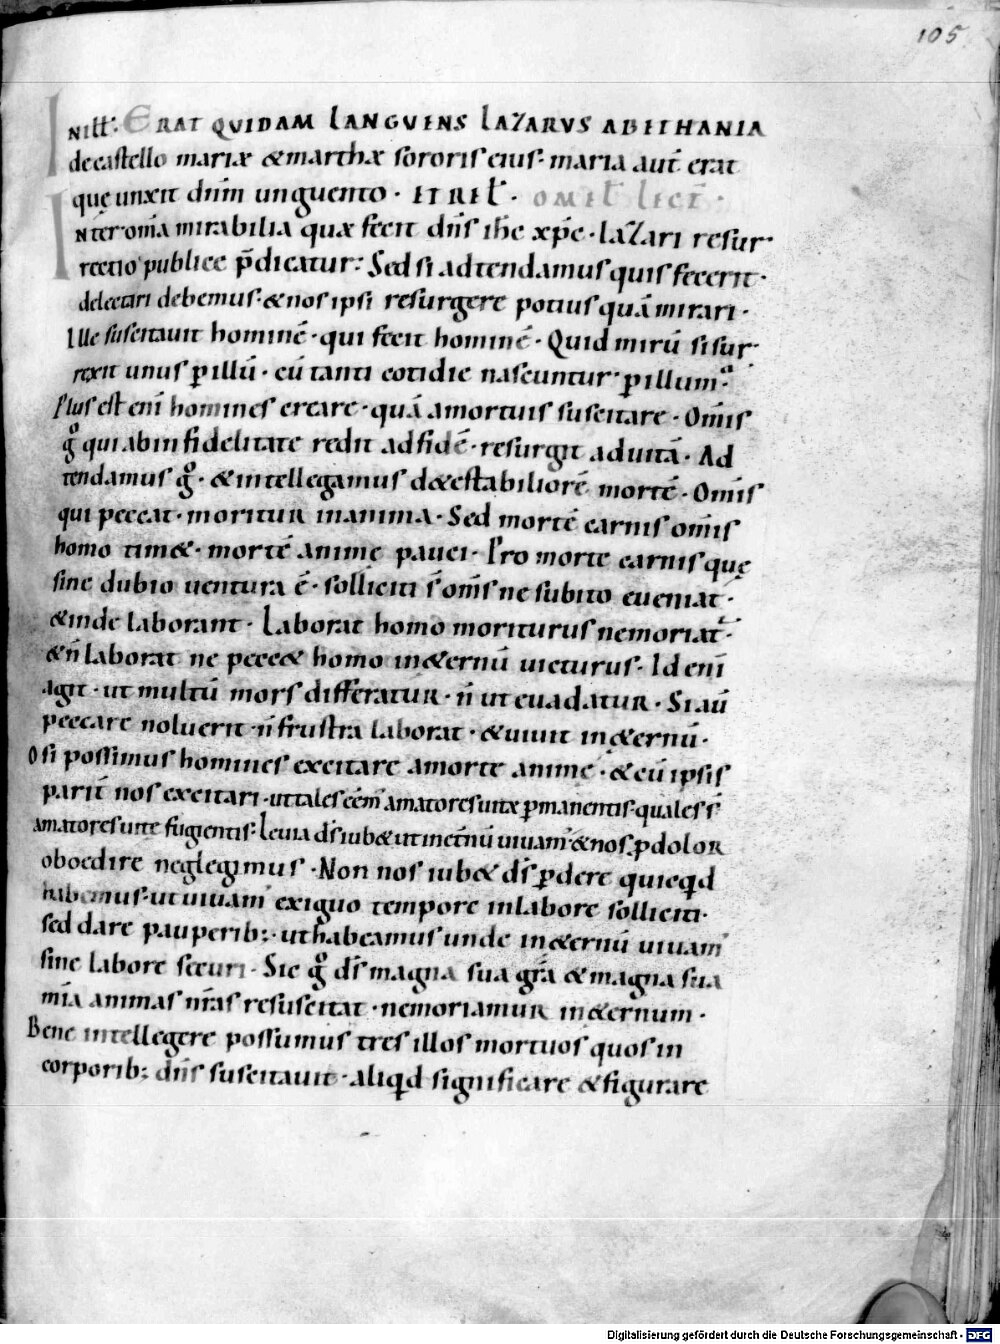 105
IN ILL̄T. ERAT QVIDAM LANGVENS LAZARVS ABETHANIA
de castello mariæ & marthæ sororis eius. maria aut̄ erat
quę unxit dn̄m unguento. ET REL̄.
Inter om̄a mirabilia quæ fecit dn̄s ih̄c xp̄c. lazari resur
rectio publice p̄dicatur. Sed si adtendamus quis fecerit.
delectari debemus. & nos ipsi resurgere potius quā mirari.
Ille suscitauit hominē. qui fecit hominē. Quid mirū si sur
rexit unus p illū. cū tanti cotidie nascuntur p illum.
Plus est eni homines creare. quā a mortuis suscitare. Om̄is
g̊ qui ab infidelitate redit ad fidē. resurgit ad uitā. Ad
tendamus g̊. & intellegamus d&estabiliorē mortē. Om̄is
qui peccat. moritur in anima. Sed mortē carnis om̄is
homo tim&. mortē animę pauci. Pro morte carnis quę
sine dubio uentura ē. solliciti s̄ om̄s ne subito eueniat.
& inde laborant. Laborat homo moriturus ne moriat̄.
& n̄ laborat ne pecc& homo in &ernū uicturus. Id eni
agit. ut multū mors differatur. n̄ ut euadatur. Si aū
peccare noluerit. n̄ frustra laborat. & uiuit in &ernū.
O si possimus homines excitare a morte animę. & cū ipsis
parit̄ nos excitari. ut tales eēm̄ amatores uitæ pmanentis. quales s̄
amatores uite fugientis. Leuia ds̄ iub& ut in et̄nū uiuam̄. & nos p dolor
oboedire neglegimus. Non nos iub& ds̄ pdere quicqd
habemus. ut uiuam̄ exiguo tempore in labore solliciti.
sed dare pauperib;. ut habeamus unde in &ernū uiuam̄
sine labore securi. Sic g̊ ds̄ magna sua gr̄a & magna sua
mīa animas nr̄as resuscitat. ne moriamur in &ernum.
Bene intellegere possumus tres illos mortuos quos in
corporib; dn̄s suscitauit. aliqd significare & figurare
Digitalisierung gefördert durch die Deutsche Forschungsgemeinschaft - DFG